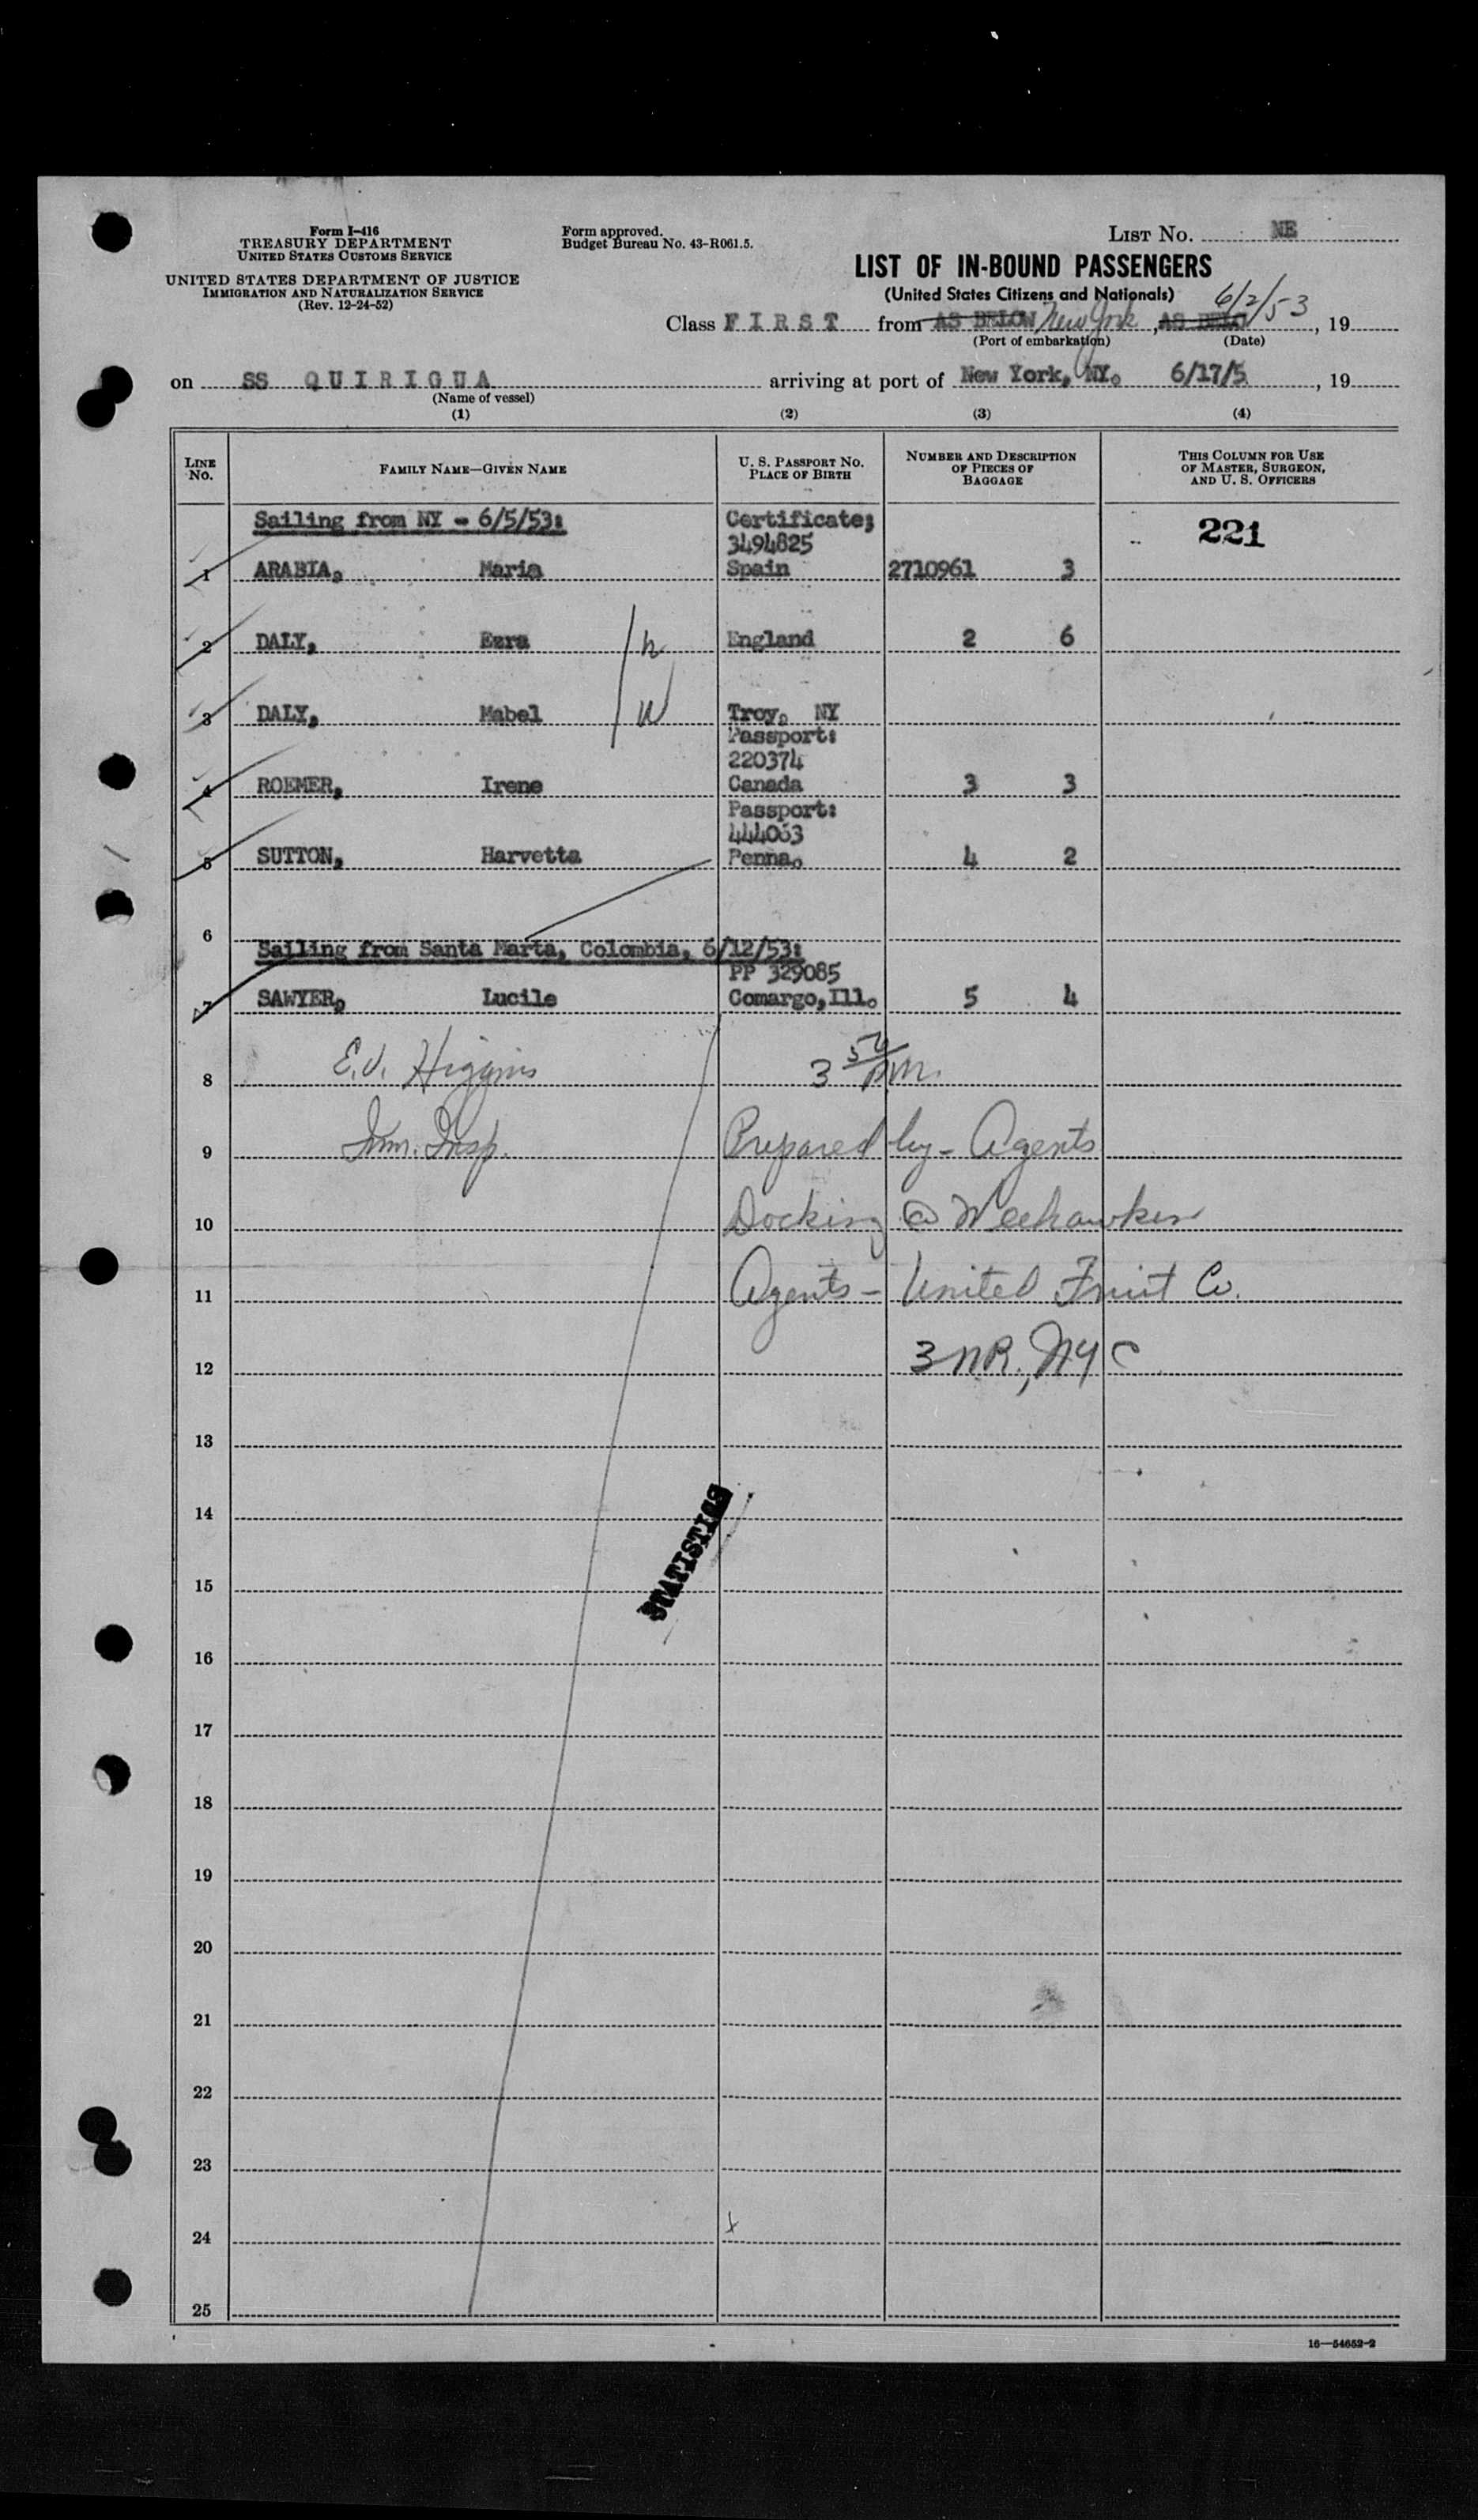 Form I-416
TREASURY DEPARTMENT
UNITED STATES CUSTOMS SERVICE
UNITED STATES DEPARTMENT OF JUSTICE
IMMIGRATION AND NATURALIZATION SERVICE
(Rev. 12-24-52)
Form approved.
Budget Bureau No. 43-R061.5.
LIST No. NE
LIST OF IN-BOUND PASSENGERS
(United States Citizens and Nationals)
Class FIRST from AS BELOW New York, AS BELO 6/2/53, 19
(Port of embarkation) (Date)
on SS QUIRIGUA arriving at port of New York, NY. 6/17/5, 19
(Name of vessel)
(1) (2) (3) (4)
LINE No. FAMILY NAME—GIVEN NAME U. S. PASSPORT NO. PLACE OF BIRTH NUMBER AND DESCRIPTION OF PIECES OF BAGGAGE THIS COLUMN FOR USE OF MASTER, SURGEON, AND U. S. OFFICERS
Sailing from NY - 6/5/53: Certificate; 221
3494825
1 ARABIA, Maria Spain 2710961 3
2 DALY, Ezra h England 2 6
3 DALY, Mabel W Troy, NY
Passport:
220374
4 ROEMER, Irene Canada 3 3
Passport:
444063
5 SUTTON, Harvetta Penna. 4 2
6
Sailing from Santa Marta, Colombia, 6/12/53:
PP 329085
7 SAWYER, Lucile Comargo, Ill. 5 4
8 E.J. Higgins 3 50 PM.
9 Imm. Insp. Prepared by - Agents
10 Docking @ Weehawken
11 Agents - United Fruit Co.
12 3 N.R., NYC
13
14
STATISTICS
15
16
17
18
19
20
21
22
23
24
25
16—54652-2